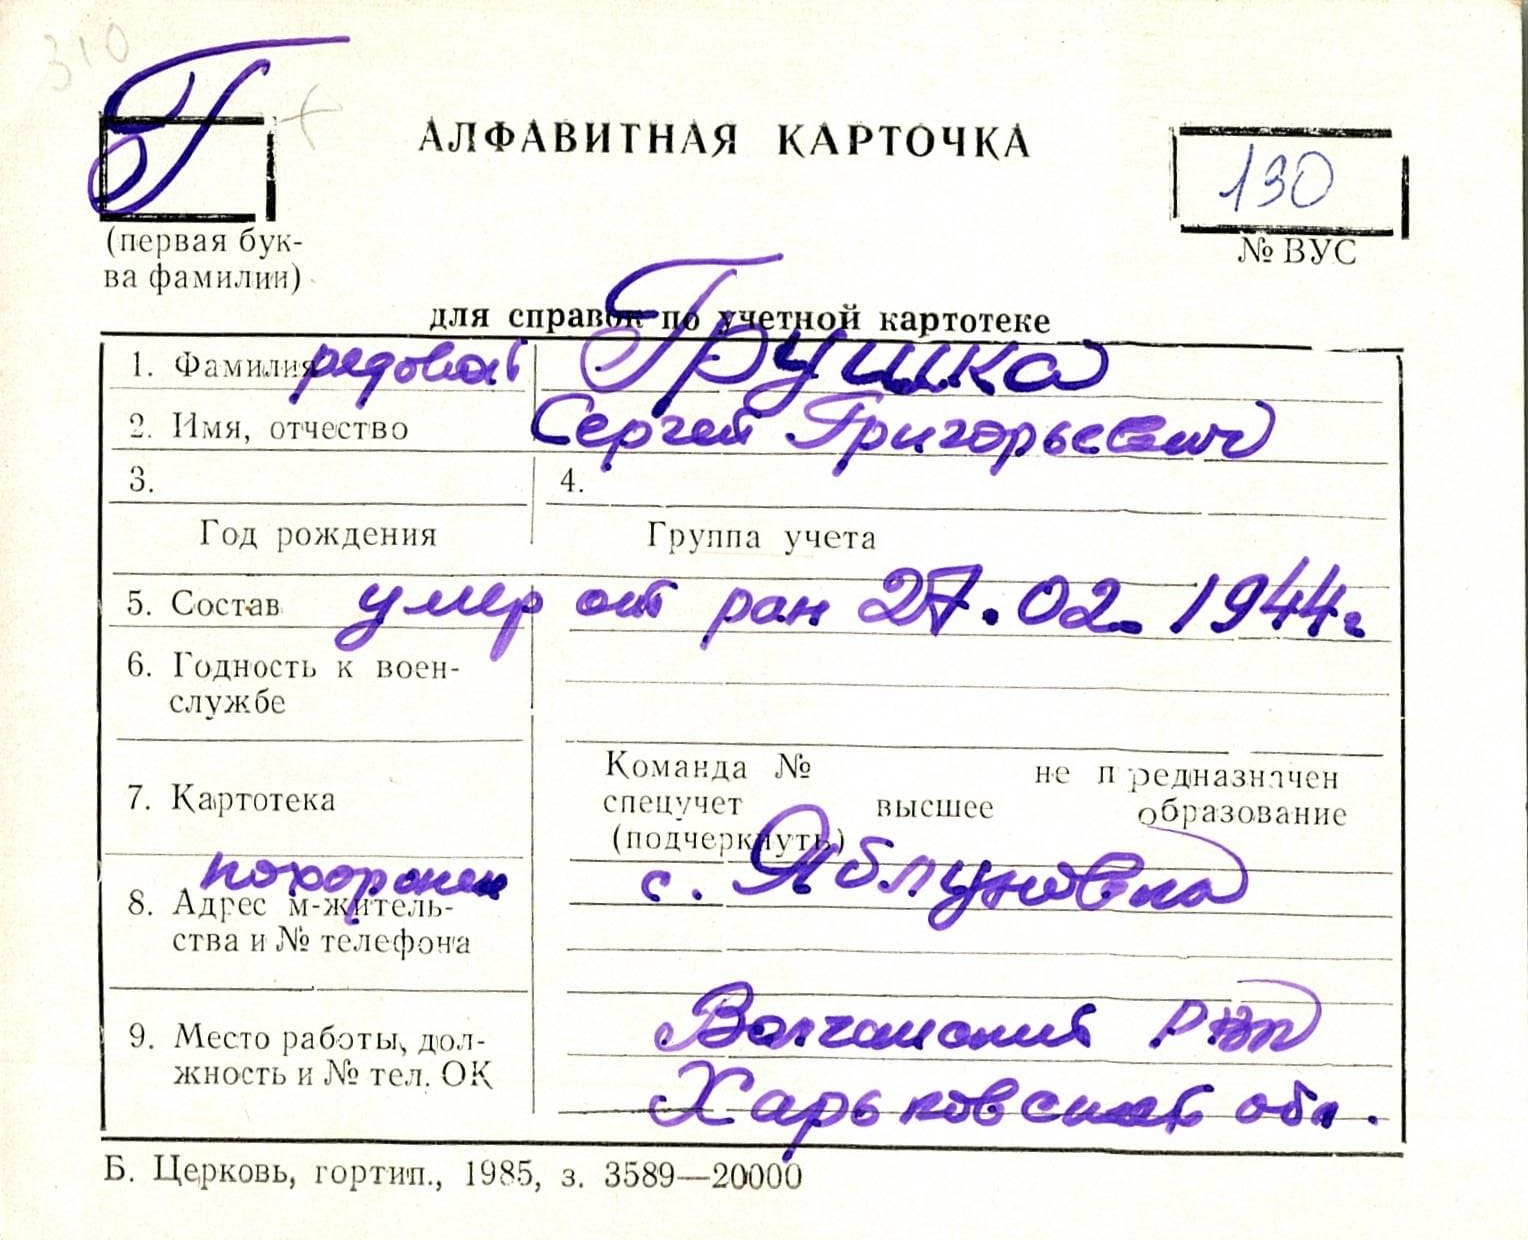 310
Г
АЛФАВИТНАЯ КАРТОЧКА
130
(первая бук-
ва фамилии)
№ ВУС
для справок по учетной картотеке
1. Фамилия рядовой Грушка
2. Имя, отчество Сергей Григорьевич
3. 4.
Год рождения Группа учета
5. Состав умер от ран 27.02.1944г
6. Годность к воен-
службе
7. Картотека
Команда № не предназначен
спецучет высшее образование
(подчеркнуть)
похоронен с. Яблуновка
8. Адрес м-житель-
ства и № телефона
Волчанский р-н
9. Место работы, дол-
жность и № тел. ОК
Харьковской обл.
Б. Церковь, гортип., 1985, з. 3589—20000